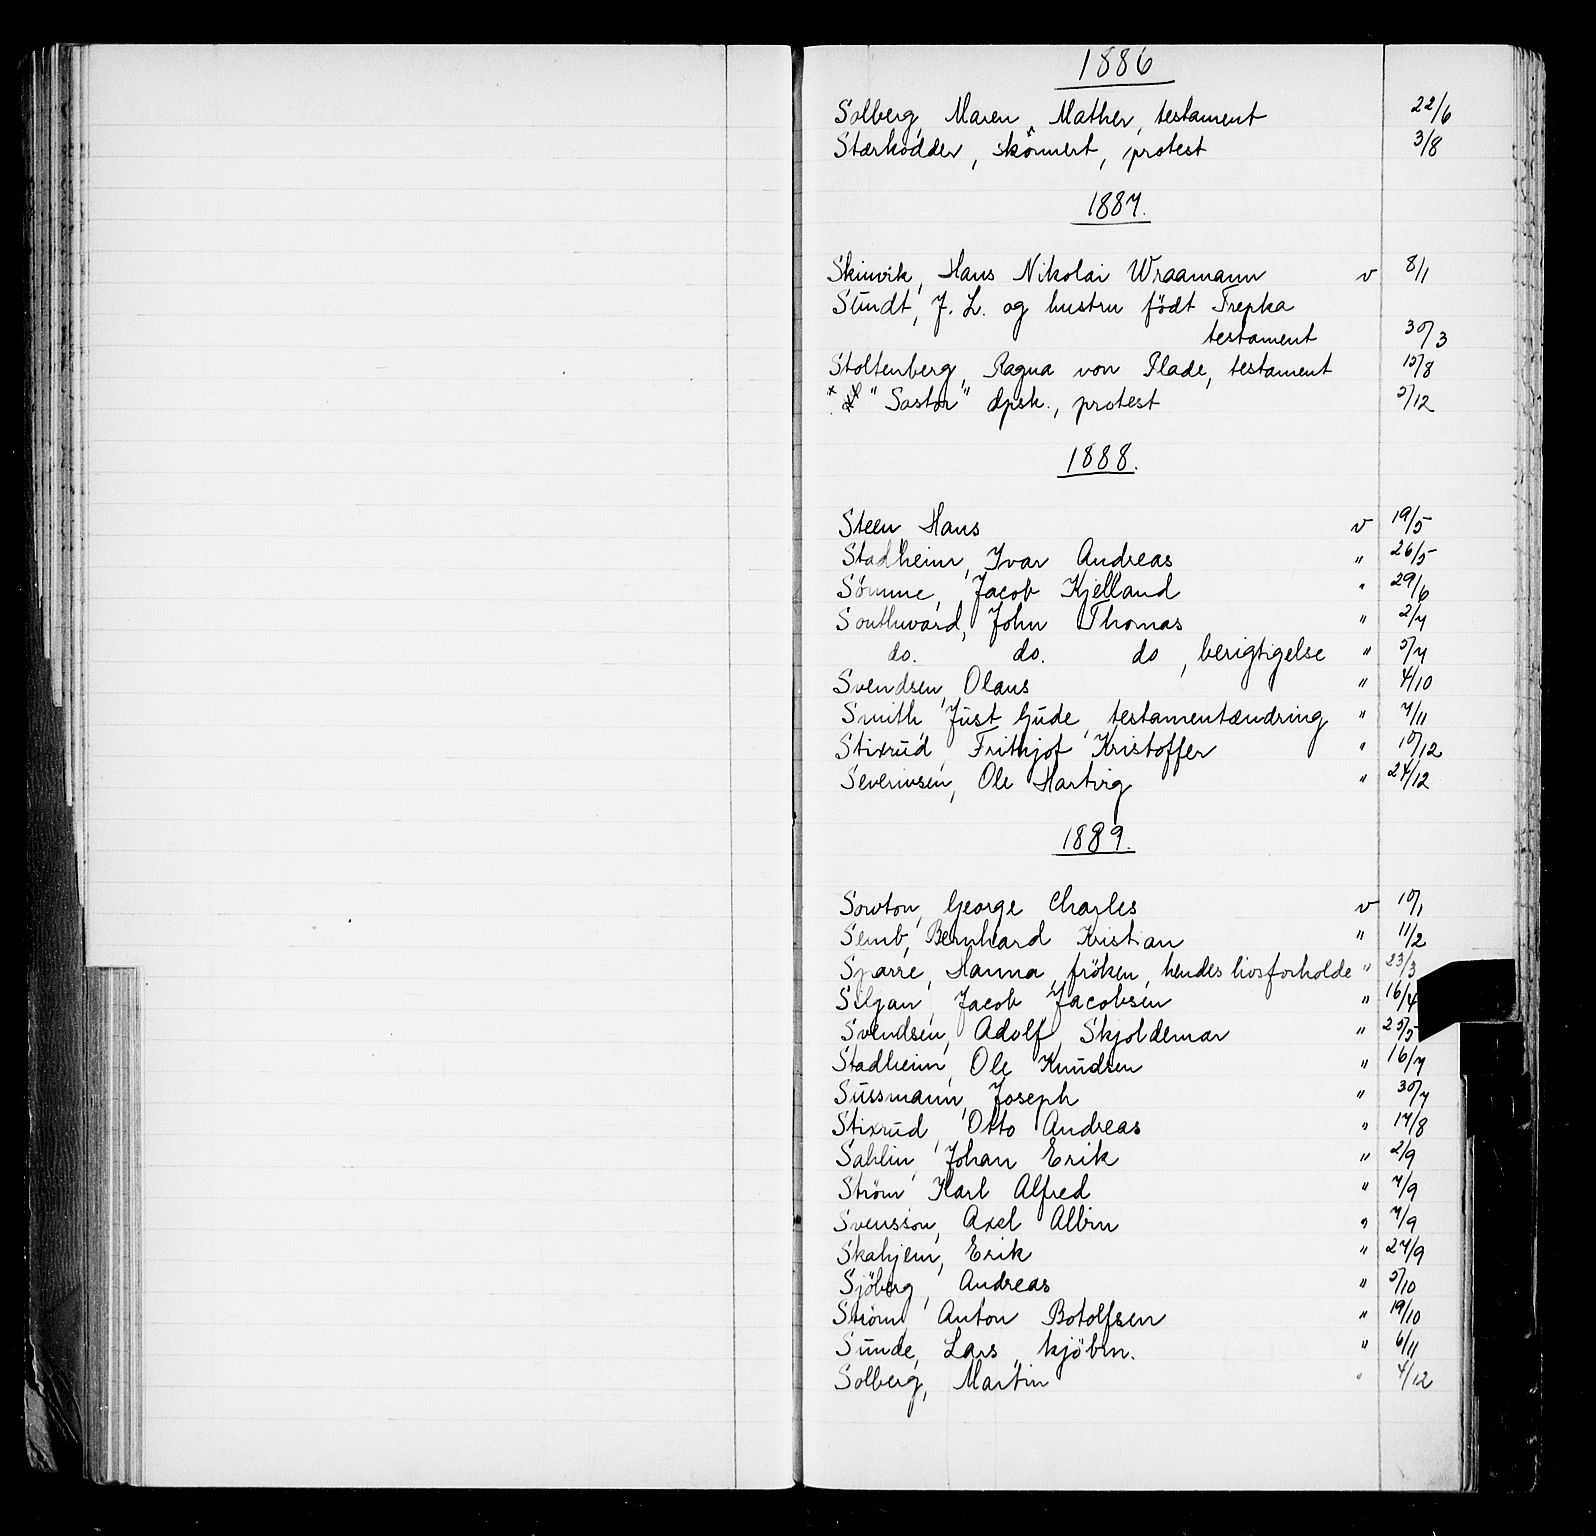 1886
Solberg, Maren, Mather, testament 22/6
Stærkodder, skönnert, protest 3/8
1887.
Skinvik, Hans Nikolai Wraamann v 8/1
Stundt, J. L. og hustru födt Trepka
testament 30/3
Stoltenberg, Ragna von Plade, testament 15/8
"Sostor" dpsk., protest 5/12
1888.
Steen Hans v 19/5
Stadheim, Ivar Andreas " 26/5
Sömme, Jacob Kjelland " 29/6
Southward, John Thomas " 2/7
do. do. do, berigtigelse " 5/7
Svendsen, Olaus " 4/10
Smith, Just Gude, testamentændring " 7/11
Stixrud, Frithjof Kristoffer " 10/12
Severinsen, Ole Hartvig " 24/12
1889.
Sowton, George Charles v 10/1
Semb, Bernhard Kristian " 11/2
Sparre, Hanna, fröken, hendes livsforholde " 23/3
Siljan, Jacob Jacobsen " 16/4
Svendsen, Adolf Skjoldemar " 25/5
Stadheim, Ole Knudsen " 16/7
Sussmann, Joseph " 30/7
Stixrud, Otto Andreas " 17/8
Sahlin, Johan Erik " 2/9
Ström Karl Alfred " 7/9
Svensson, Axel Albin " 7/9
Skahjem, Erik " 27/9
Sjöberg, Andreas " 5/10
Ström, Anton Botolfsen " 19/10
Sunde, Lars, kjöbm. " 6/11
Solberg, Martin " 4/12